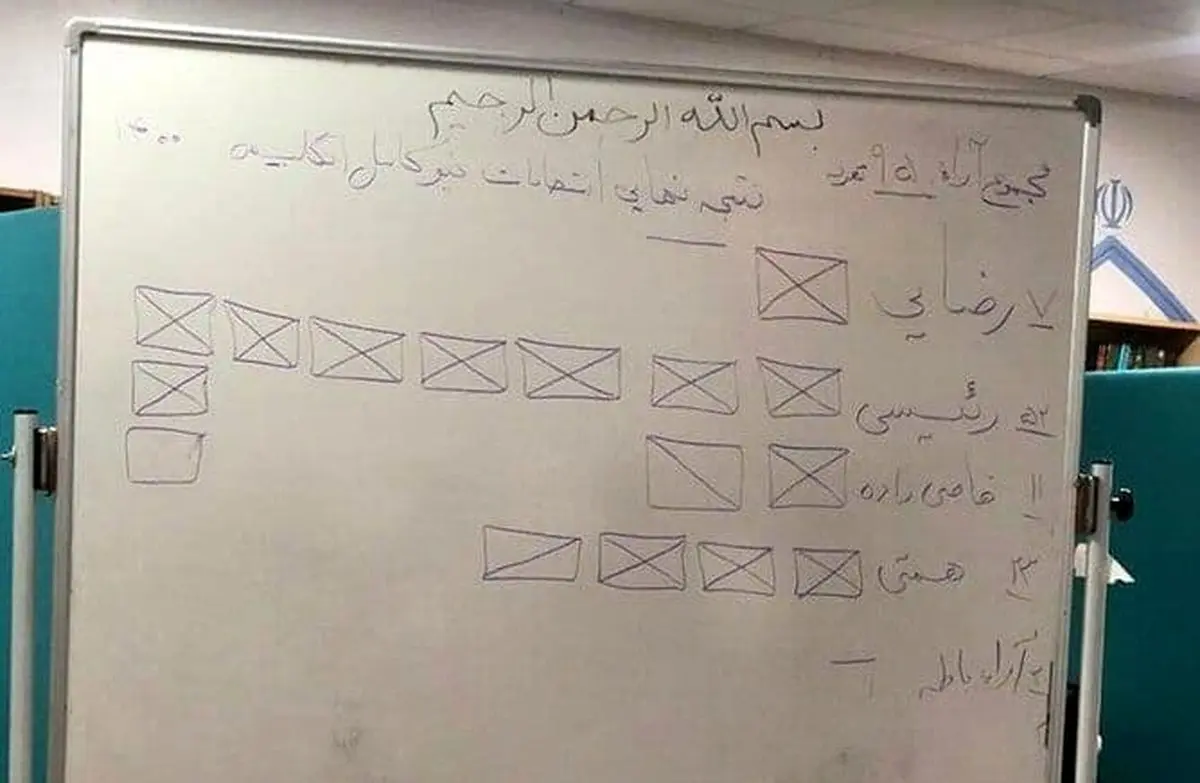 بسم الله الرحمن الرحیم
مجموع آراء ۹۵ تعرفه
نتیجه نهایی انتخابات نیوکاسل انگلیس ۱۴۰۰
۷ رضایی
۵۲ رئیسی
۱۱ قاضی زاده
۲۳ همتی
۲ آراء باطله